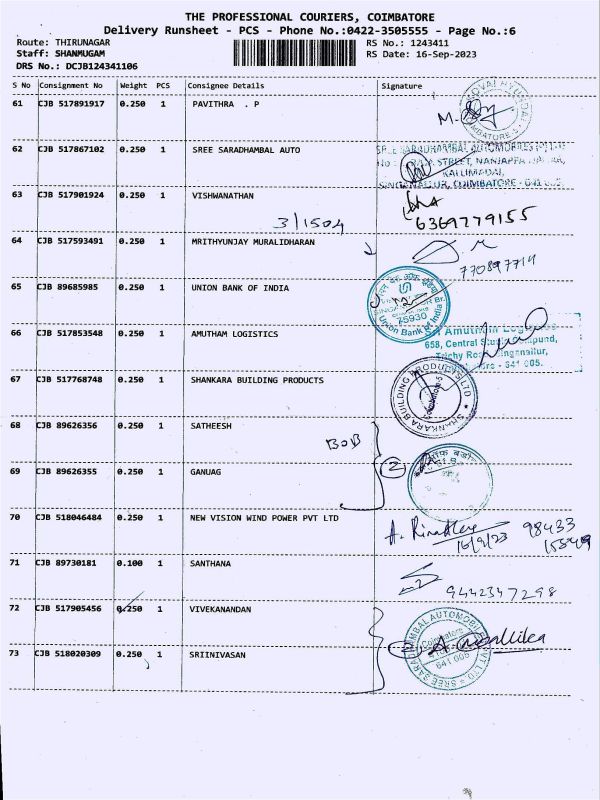 THE PROFESSIONAL COURIERS, COIMBATORE
Delivery Runsheet - PCS - Phone No.:0422-3505555 - Page No.:6
Route: THIRUNAGAR RS No.: 1243411
Staff: SHANMUGAM RS Date: 16-Sep-2023
DRS No.: DCJB124341106
S No Consignment No Weight PCS Consignee Details Signature
61 CJB 517891917 0.250 1 PAVITHRA . P
62 CJB 517867102 0.250 1 SREE SARADHAMBAL AUTO
STREET, NANJAPPA
KALLIMADAI,
SINGANALLUR, COIMBATORE - 641 005.
63 CJB 517901924 0.250 1 VISHWANATHAN
6369779155
3/1504
64 CJB 517593491 0.250 1 MRITHYUNJAY MURALIDHARAN
65 CJB 89685985 0.250 1 UNION BANK OF INDIA
Union Bank of India
66 CJB 517853548 0.250 1 AMUTHAM LOGISTICS
Sri Amutham Logistics
658, Central Studio Compund,
Trichy Road, Singanallur,
67 CJB 517768748 0.250 1 SHANKARA BUILDING PRODUCTS
SHANKARA BUILDING PRODUCTS LTD
68 CJB 89626356 0.250 1 SATHEESH
BOB
69 CJB 89626355 0.250 1 GANUAG
2
70 CJB 518046484 0.250 1 NEW VISION WIND POWER PVT LTD
16/9/23
98433
71 CJB 89730181 0.100 1 SANTHANA
9442347298
72 CJB 517905456 0.250 1 VIVEKANANDAN
73 CJB 518020309 0.250 1 SRIINIVASAN
Coimbatore
641 005